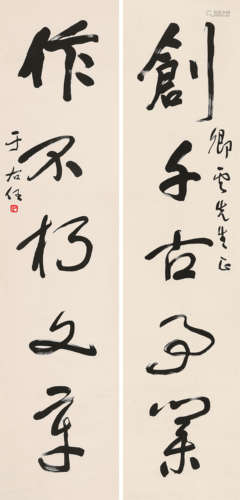 創千古事業
卿雲先生正
作不朽文章
于右任